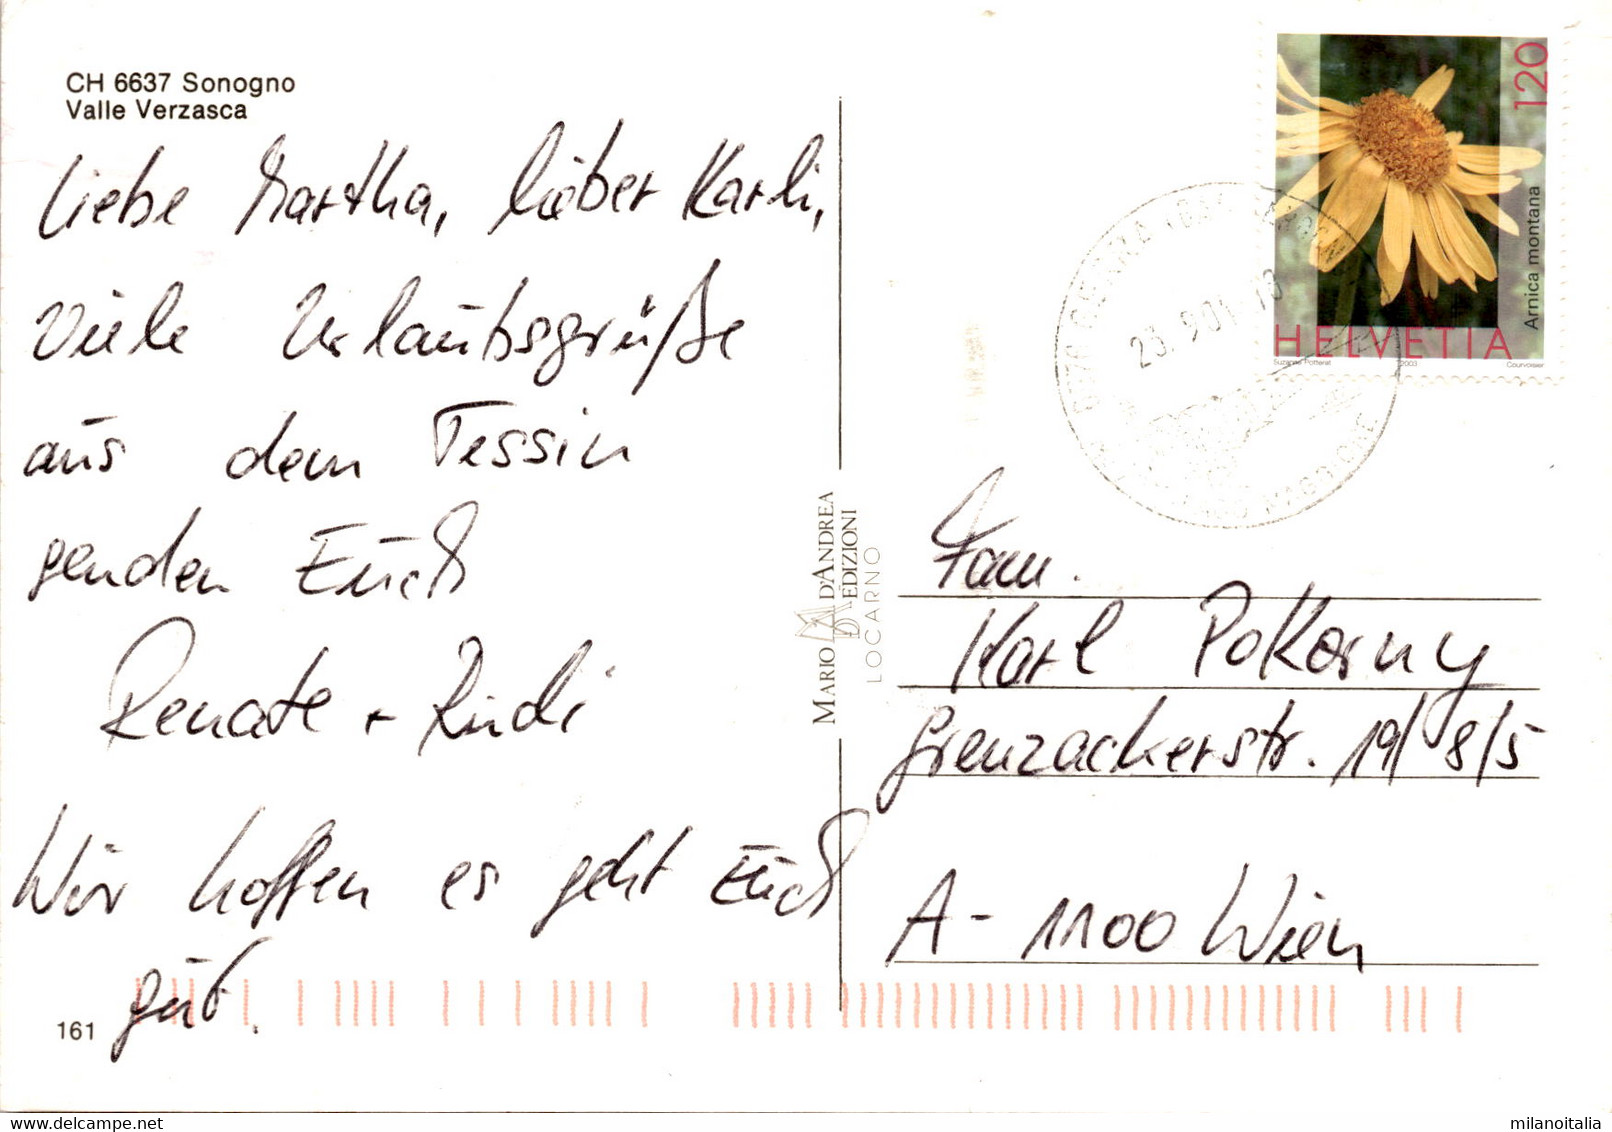 CH 6637 Sonogno
Valle Verzasca
Liebe Martha, lieber Karli,
Viele Urlaubsgrüße
aus dem Tessin
senden Euch
Renate + Rudi
Wir hoffen es geht Euch
gut.
161
MARIO D'ANDREA
EDIZIONI
LOCARNO
120
Arnica montana
HELVETIA
Suzanne Potterat 2003 Courvoisier
23. 9.04-18
Fam.
Karl Pokorny
Grenzackerstr. 19/8/5
A-1100 Wien
milanoitalia